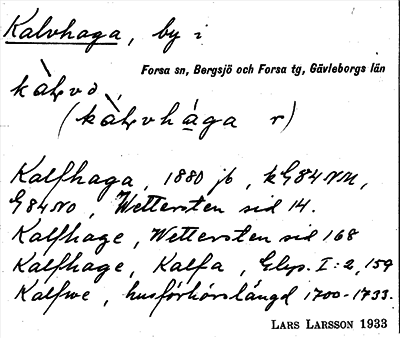 Kalvhaga, by i
Forsa sn, Bergsjö och Forsa tg, Gävleborgs län
(kàlvhága r)
Kalfhaga, 1880 jb, kG84NM,
G84NO, Wettersten sid 14.
Kalfhage, Wettersten sid 168
Kalfhage, Kalfa, Glyp. I:2, 159
Kalfwe, husförhörslängd 1700-1733.
LARS LARSSON 1933